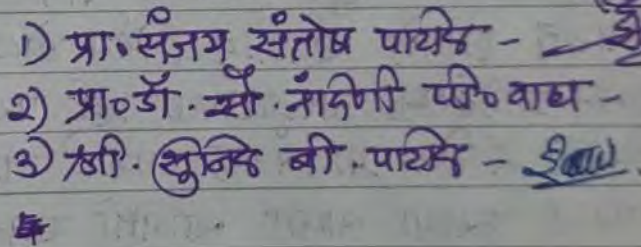 1) प्रा॰ संजय संतोष पाटील -
2) प्रा॰ डॉ. सौ. नंदिनी पी॰ वाघ -
3) श्री. सुनिल बी. पाटील -